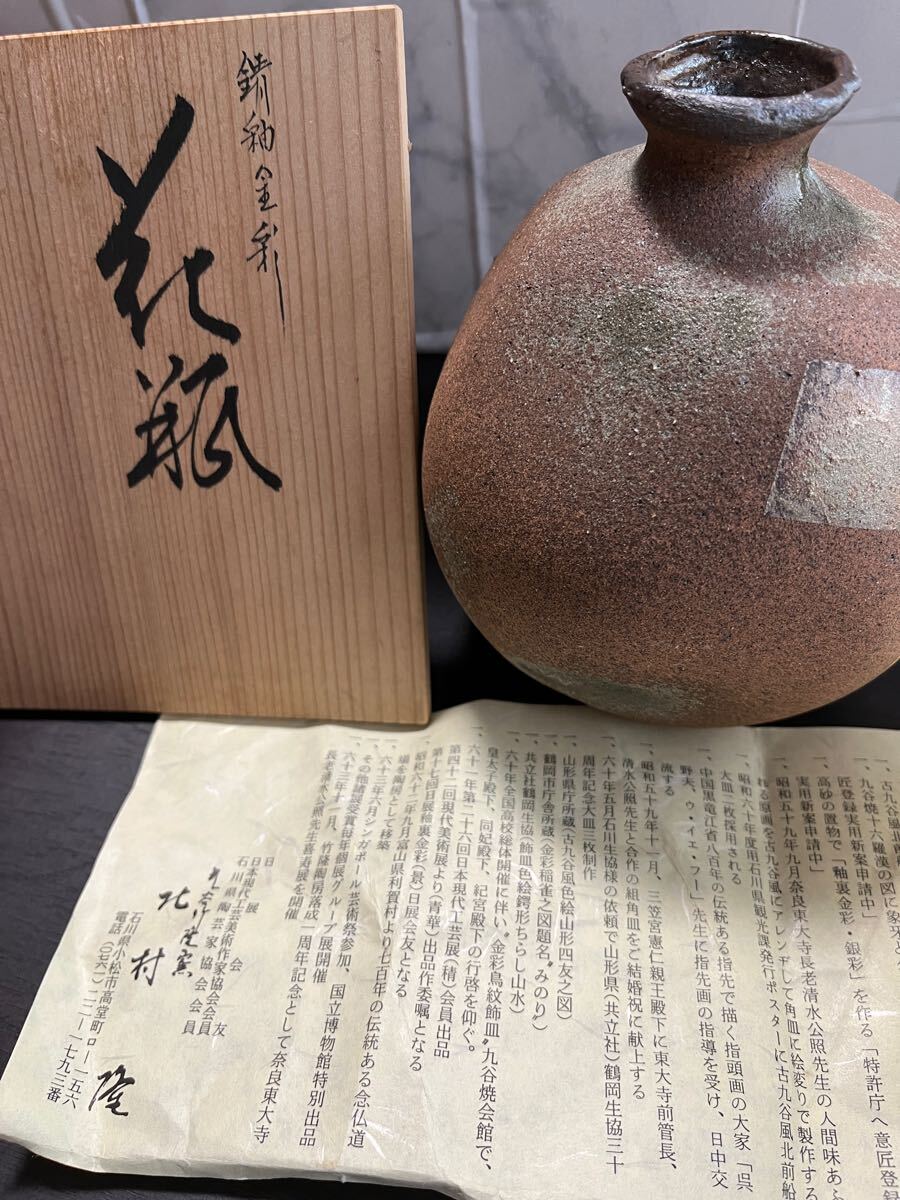 錆釉金彩
花瓶
九谷焼十六羅漢の図に象牙と
匠登録実用新案申請中」
一、高砂の置物で「釉裏金彩・銀彩」を作る「特許庁へ意匠登録
実用新案申請中」
一、昭和五十九年九月奈良東大寺長老清水公照先生の人間味あふ
れる原画を古九谷風にアレンヂして角皿に絵変りで製作する
一、昭和六十年度用石川県観光課発行ポスターに古九谷風北前船
大皿二枚採用される
一、中国黒竜江省八百年の伝統ある指先で描く指頭画の大家「呉
野夫、ウ・イェ・フー」先生に指先画の指導を受け、日中交
流する
一、昭和五十九年十一月、三笠宮憲仁親王殿下に東大寺前管長、
清水公照先生と合作の組角皿をご結婚祝に献上する
一、六十年五月石川生協様の依頼で山形県(共立社)鶴岡生協三十
周年記念大皿三枚制作
一、山形県庁所蔵(古九谷風色絵山形四友之図)
一、鶴岡市庁舎所蔵(金彩稲雀之図題名〝みのり〟)
一、共立社鶴岡生協飾皿色絵鍔形ちらし山水)
一、六十年全国高校総体開催に伴い〝金彩鳥紋飾皿〟九谷焼会館で、
皇太子殿下、同妃殿下、紀宮殿下の行啓を仰ぐ。
一、六十一年第二十六回日本現代工芸展(積)会員出品
一、第四十一回現代美術展より(青華)出品作委嘱となる
一、第十七回日展釉裏金彩(景)日展会友となる
一、昭和六十二年九月富山県利賀村より七百年の伝統ある念仏道
場を陶房として移築
一、六十三年六月シンガポール芸術祭参加、国立博物館特別出品
一、その他諸展受賞毎年個展グループ展開催
一、六十三年十一月、竹隆陶房落成一周年記念として奈良東大寺
長老清水公照先生喜寿展を開催
日展会友
日本現代工芸美術作家協会会員
石川県陶芸家協会会員
北村 隆
石川県小松市高堂町ロ一五六
電話(〇七六一)二二ー一七九三番